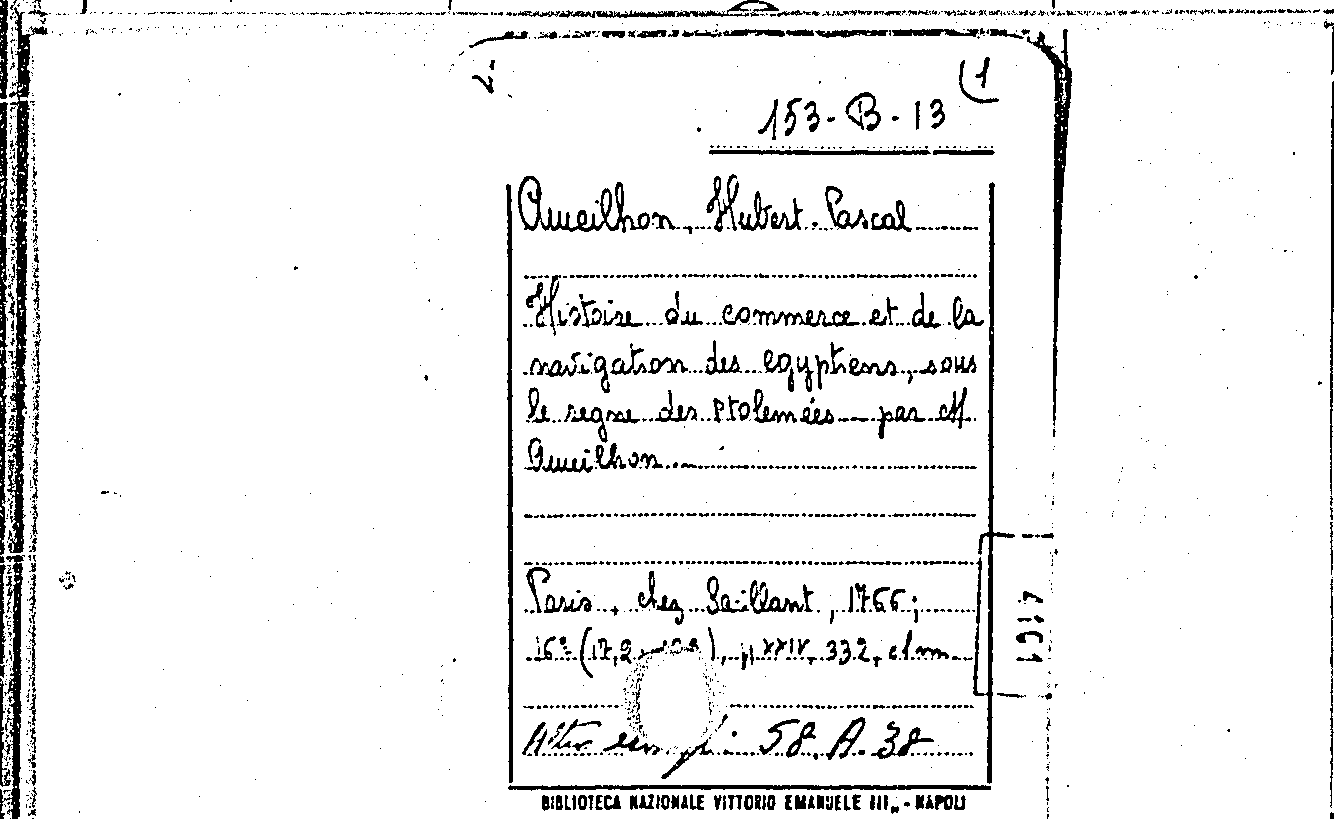 (1
153-B-13
Ameilhon, Hubert-Pascal
Histoire du commerce et de la
navigation des egyptiens, sous
le regne des Ptolemées par M
Ameilhon
Paris, chez Saillant, 1766;
16° (17,2 ), p XXIV, 332, clmn
58. A. 38
BIBLIOTECA NAZIONALE VITTORIO EMANUELE III„ - NAPOLI